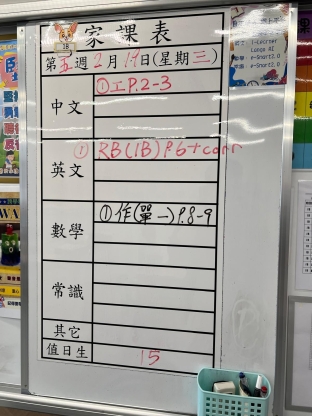 家課表
1B
第五週 2月19日(星期三)
中文 ①工P.2-3
英文 ① RB(1B) P.6+corr
數學 ①作(單一)P.8-9
常識
其它
值日生 15